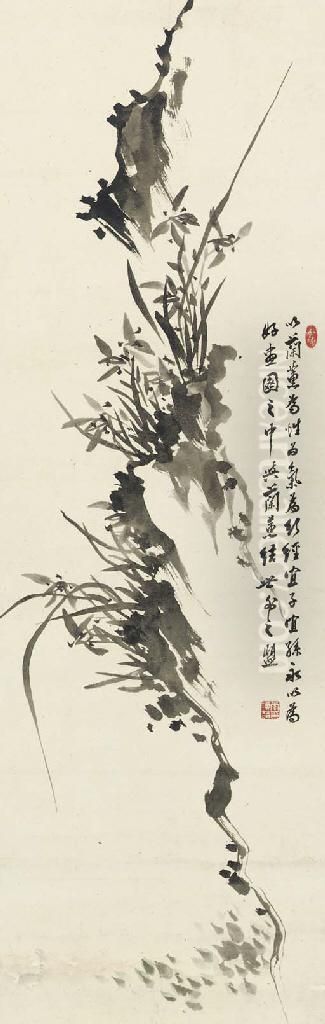 以蘭蕙為性白氣為形經宜子宜孫永以為
好畫圖之中與蘭蕙結世外之盟